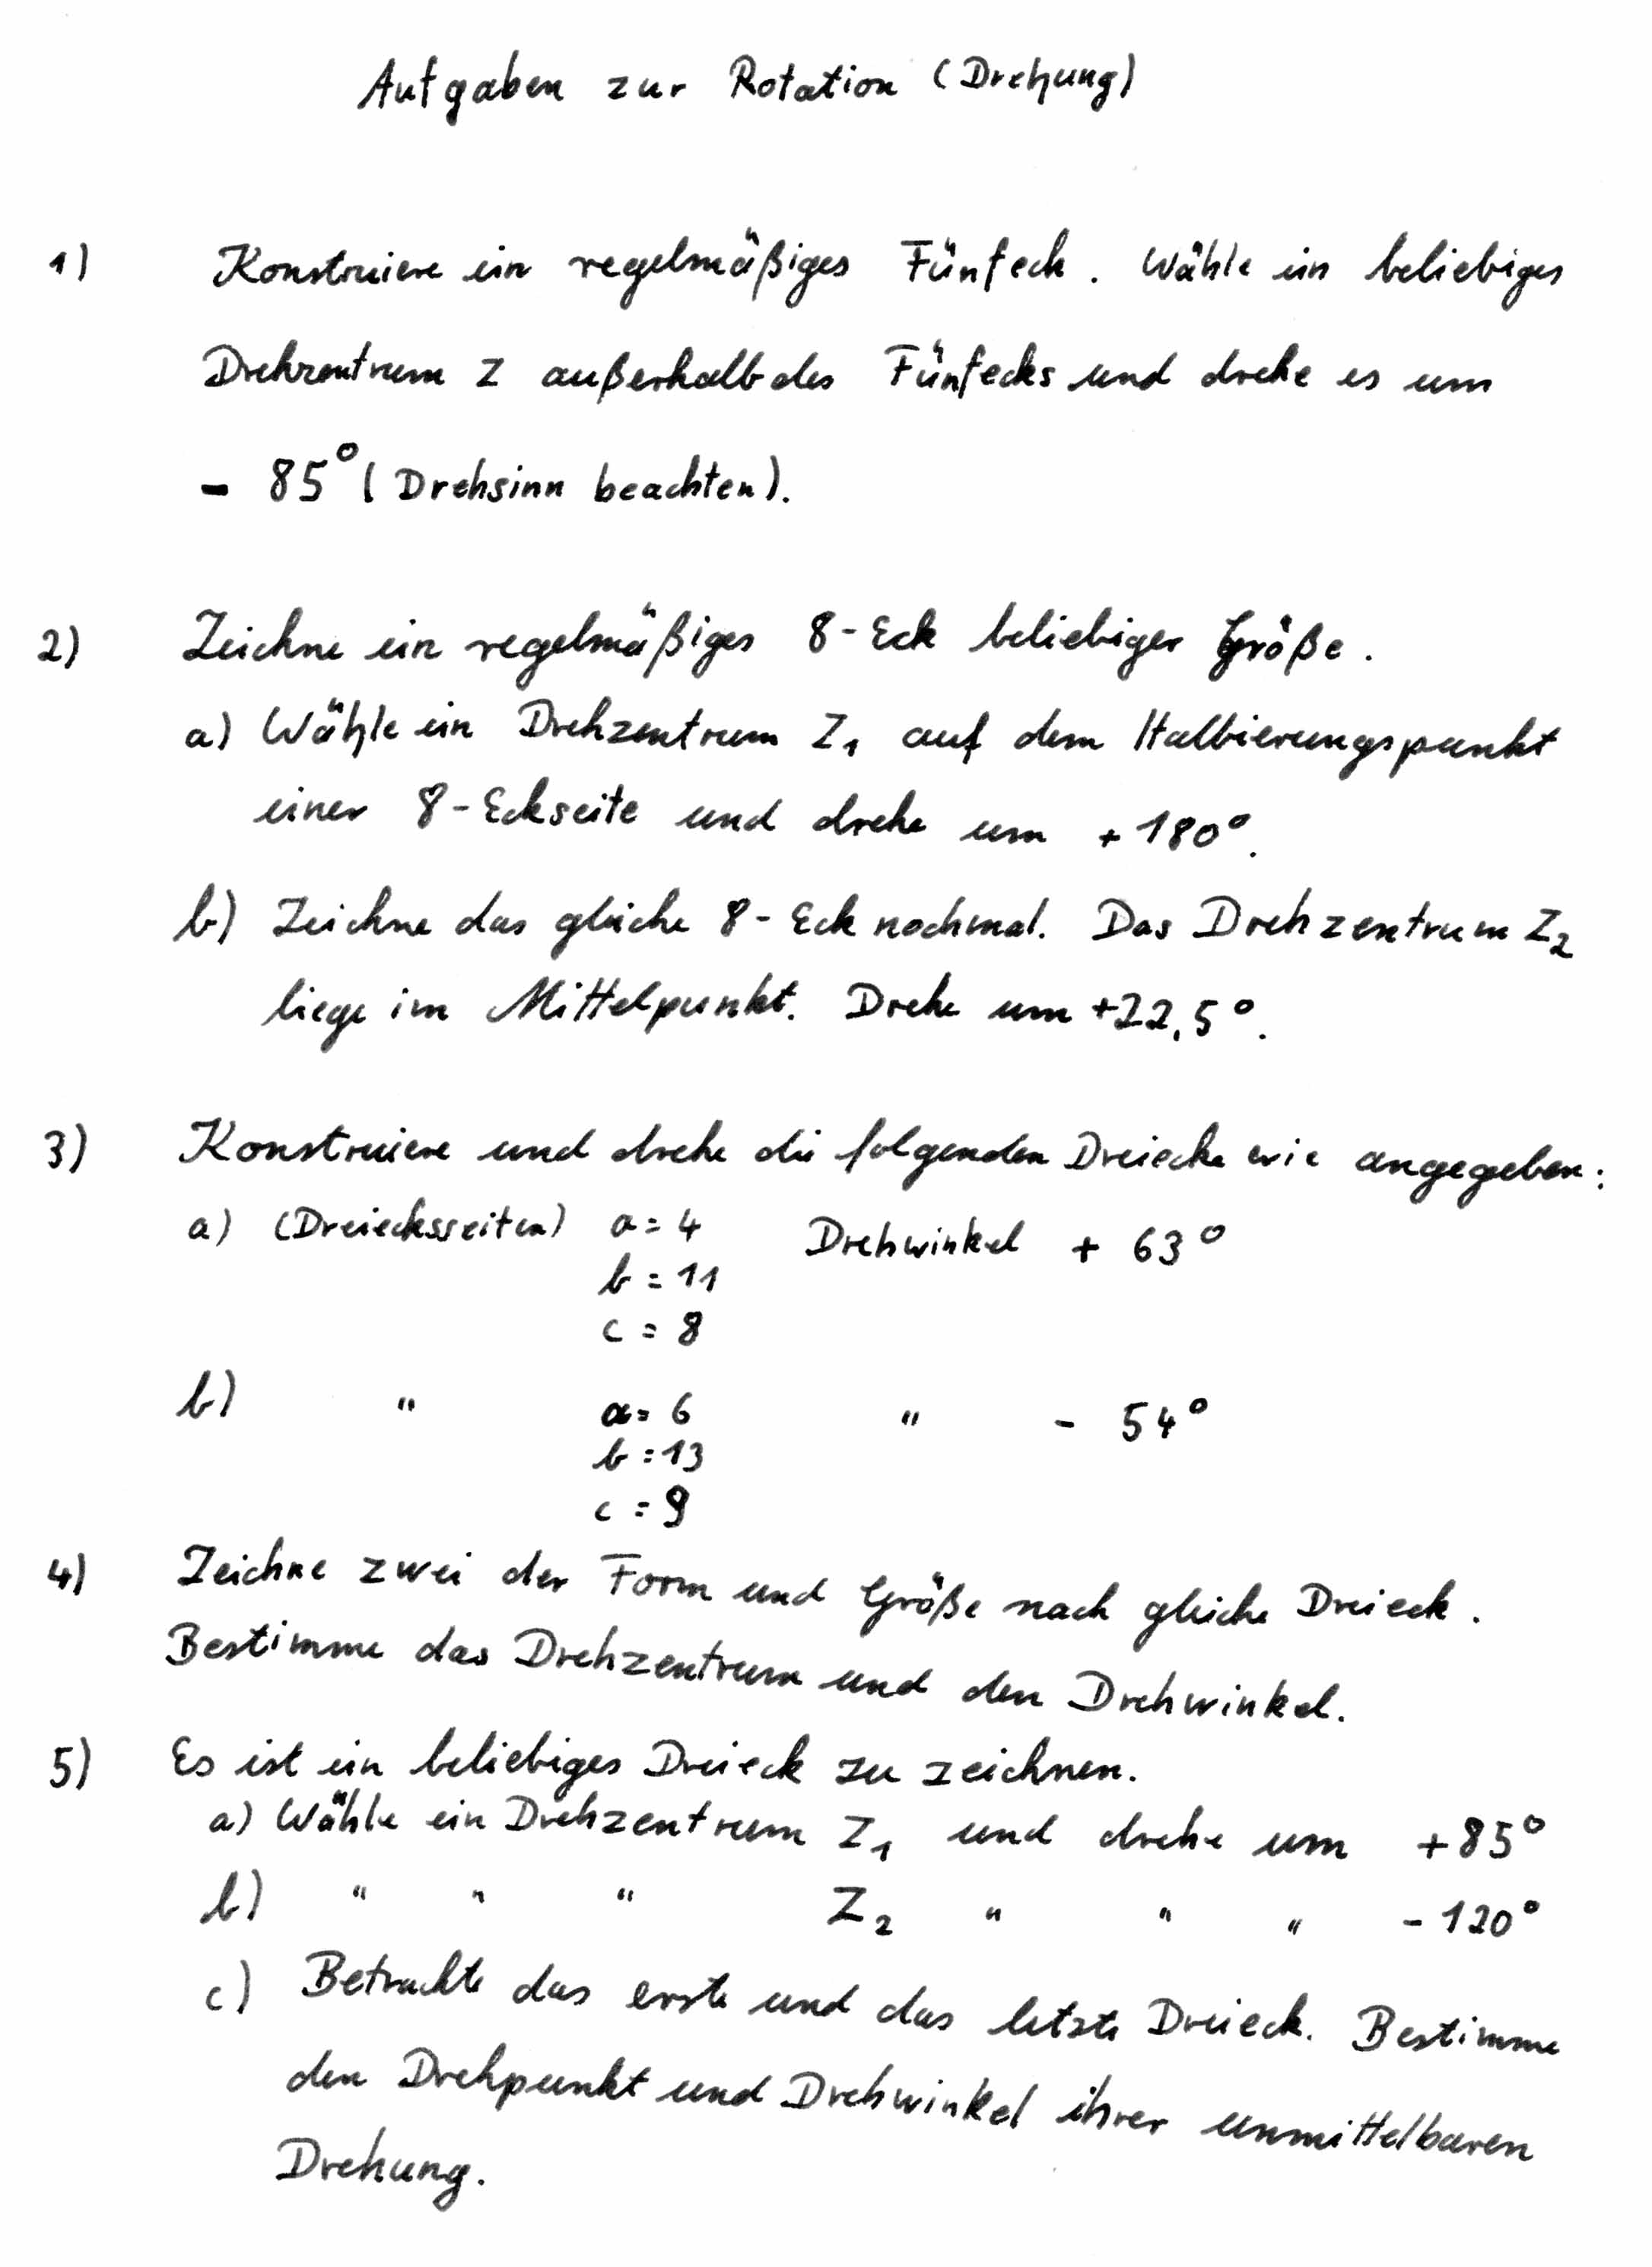 Aufgaben zur Rotation (Drehung)
1) Konstruiere ein regelmäßiges Fünfeck. Wähle ein beliebiges
Drehzentrum Z außerhalb des Fünfecks und drehe es um
- 85° (Drehsinn beachten).
2) Zeichne ein regelmäßiges 8-Eck beliebiger Größe.
a) Wähle ein Drehzentrum Z₁ auf dem Halbierungspunkt
einer 8-Eckseite und drehe um +180°.
b) Zeichne das gleiche 8-Eck nochmal. Das Drehzentrum Z₂
liege im Mittelpunkt. Drehe um +22,5°.
3) Konstruiere und drehe die folgenden Dreiecke wie angegeben:
a) (Dreiecksseiten) a = 4 Drehwinkel + 63°
b = 11
c = 8
b) " a = 6 " - 54°
b = 13
c = 9
4) Zeichne zwei der Form und Größe nach gleiche Dreieck.
Bestimme das Drehzentrum und den Drehwinkel.
5) Es ist ein beliebiges Dreieck zu zeichnen.
a) Wähle ein Drehzentrum Z₁ und drehe um +85°
b) " " " Z₂ " " " - 120°
c) Betrachte das erste und das letzte Dreieck. Bestimme
den Drehpunkt und Drehwinkel ihrer unmittelbaren
Drehung.